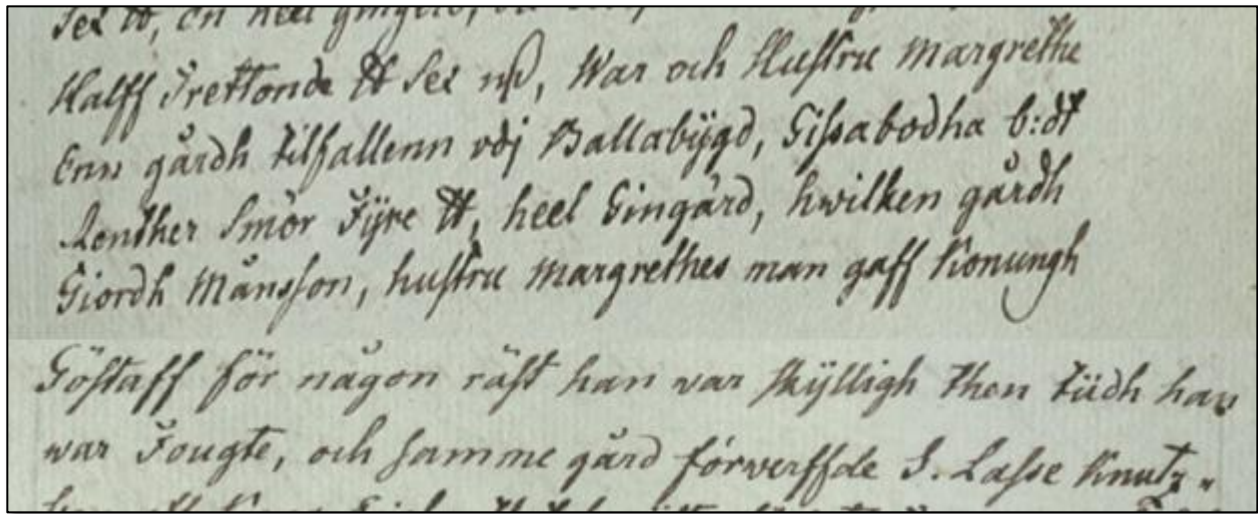 Sex ℔, en heel gingerd,
Halff Trettonde ℔ Sex m℔, War och Hustru Margrethe
Enn gårdh tilfallenn vdj Ballabÿgd, Gissabodha b:dt
Renther Smör Fÿre ℔, heel Gingård, hwilken gårdh
Giordh Månsson, hustru Margrethes man gaff Konungh
Göstaff för någon räst han var skÿlligh then tiidh han
war Fougte, och samme gård förwerffde S. Lasse Knutz-